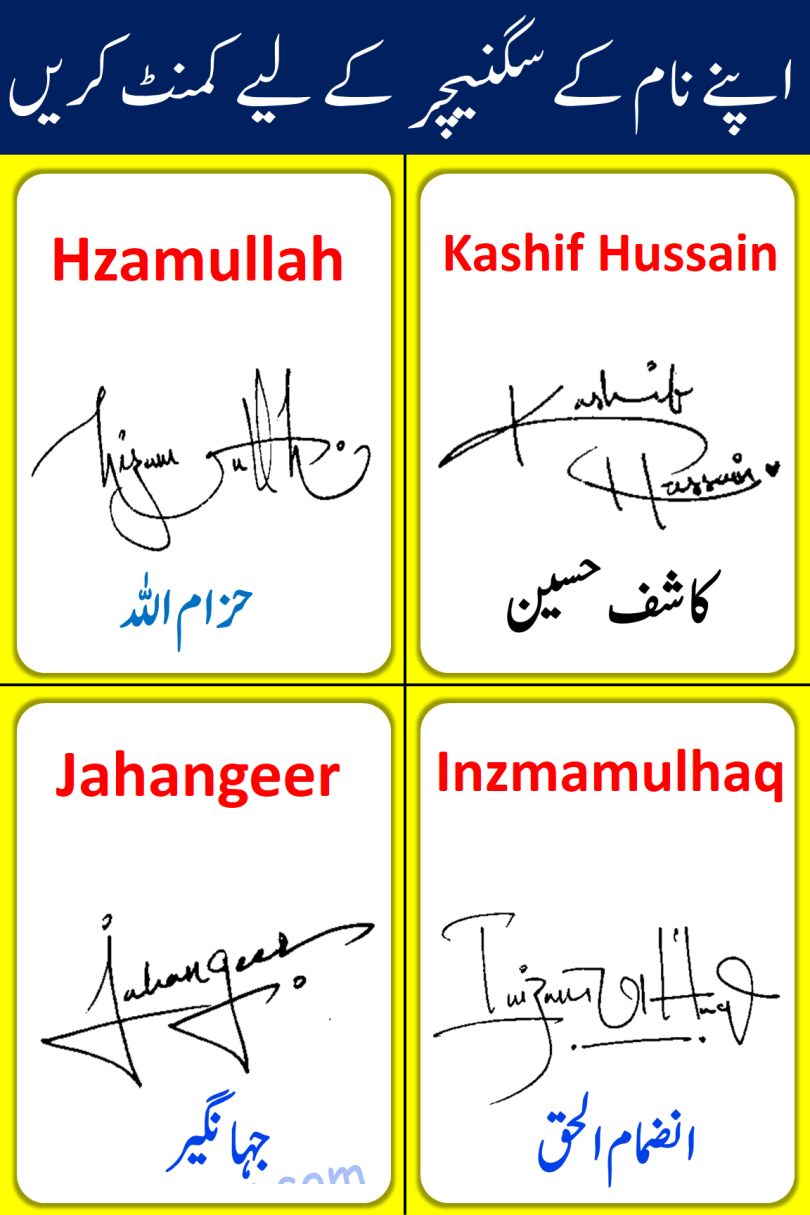 اپنے نام کے سگنیچر کے لیے کمنٹ کریں
Hzamullah
hizam ullh
حزام اللہ
Kashif Hussain
Kashif
Hussain
کاشف حسین
Jahangeer
Jahangeer
جہانگیر
.com
Inzmamulhaq
Inizam ul Haq
انضمام الحق